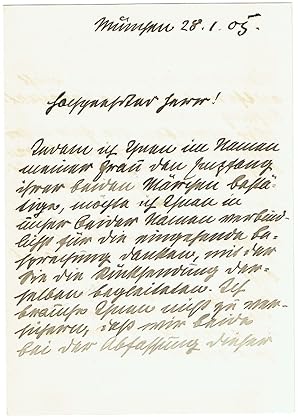 München 28.1.05.
Hochgeehrter Herr!
Indem ich Ihnen im Namen
meiner Frau den Empfang
ihrer beiden Märchen bestä-
tige, möchte ich Ihnen in
unser beider Namen verbind-
lichst für die eingehende Be-
sprechung danken, mit der
Sie die Rücksendung der-
selben begleiteten. Ich
brauche Ihnen nicht zu ver-
sichern, daß wir beide
bei der Abfassung dieser